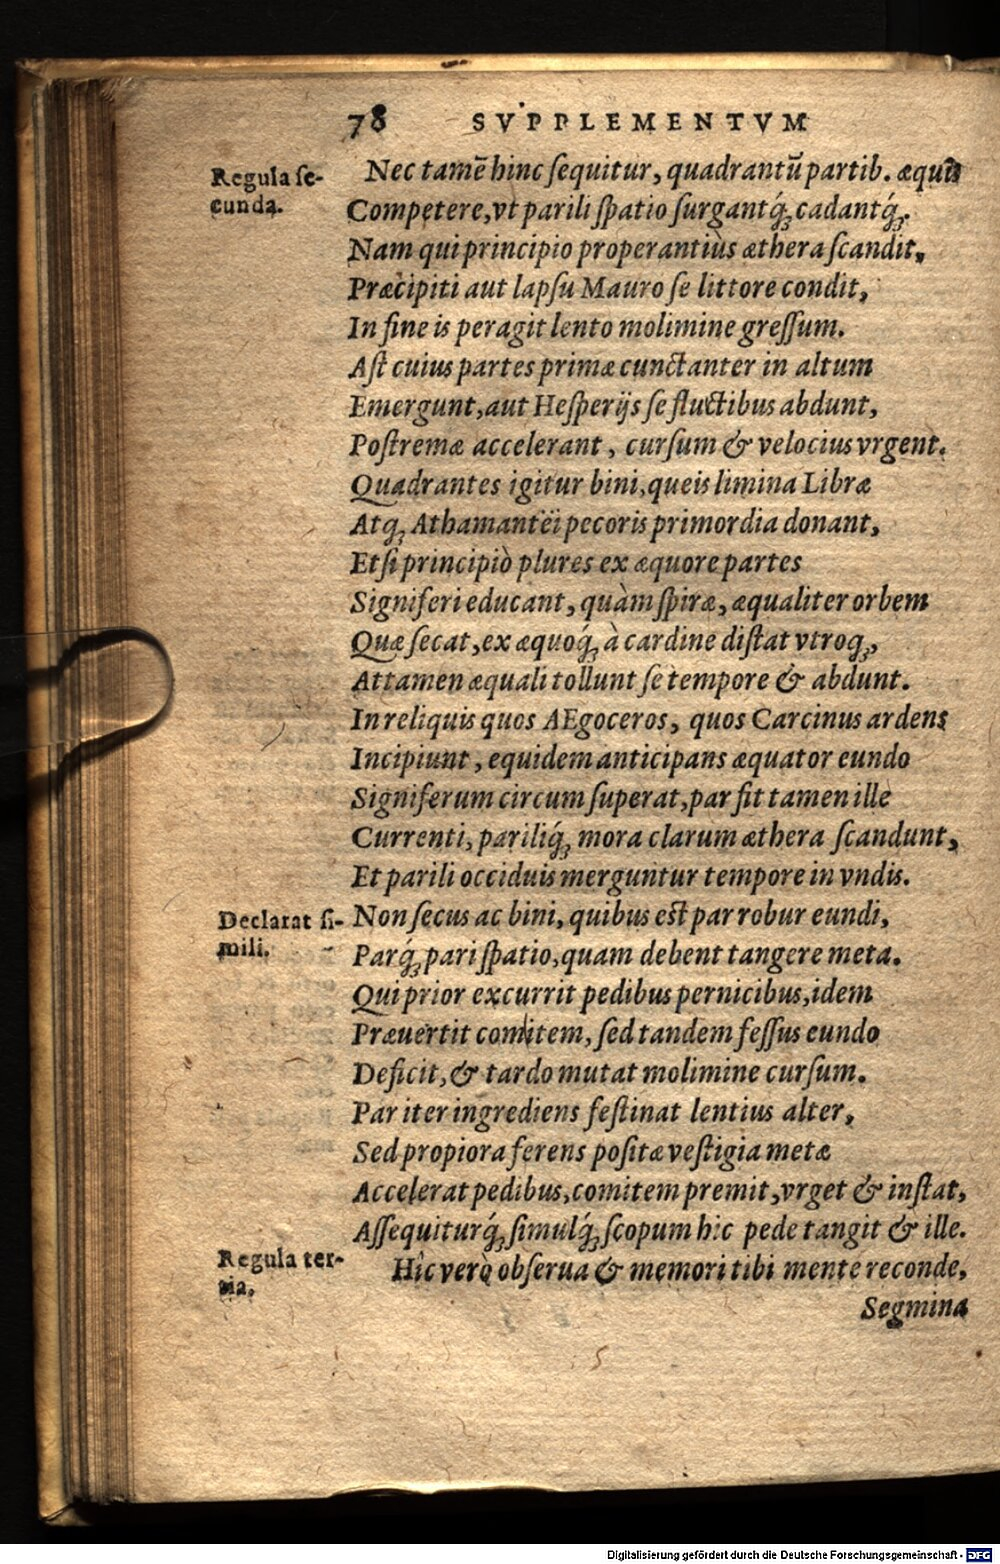 78 SVPPLEMENTVM
Regula se-
cunda.
Nec tamē hinc sequitur, quadrantū partib. æquis
Competere, vt parili spatio surgantq́; cadantq́;.
Nam qui principio properantiùs æthera scandit,
Præcipiti aut lapsu Mauro se littore condit,
In fine is peragit lento molimine gressum.
Ast cuius partes primæ cunctanter in altum
Emergunt, aut Hesperijs se fluctibus abdunt,
Postremæ accelerant, cursum & velocius vrgent.
Quadrantes igitur bini, queis limina Libræ
Atq; Athamantëi pecoris primordia donant,
Etsi principiò plures ex æquore partes
Signiferi educant, quàm spiræ, æqualiter orbem
Quæ secat, ex æquoq́; à cardine distat vtroq;,
Attamen æquali tollunt se tempore & abdunt.
In reliquis quos AEgoceros, quos Carcinus ardens
Incipiunt, equidem anticipans æquator eundo
Signiferum circum superat, par fit tamen ille
Currenti, pariliq́; mora clarum æthera scandunt,
Et parili occiduis merguntur tempore in vndis.
Declarat si-
mili.
Non secus ac bini, quibus est par robur eundi,
Parq́; pari spatio, quam debent tangere meta.
Qui prior excurrit pedibus pernicibus, idem
Præuertit comitem, sed tandem fessus eundo
Deficit, & tardo mutat molimine cursum.
Par iter ingrediens festinat lentius alter,
Sed propiora ferens positæ vestigia metæ
Accelerat pedibus, comitem premit, vrget & instat,
Assequiturq́; simulq́; scopum hic pede tangit & ille.
Regula ter-
tia.
Hîc verò obserua & memori tibi mente reconde,
Segmina
Digitalisierung gefördert durch die Deutsche Forschungsgemeinschaft - DFG